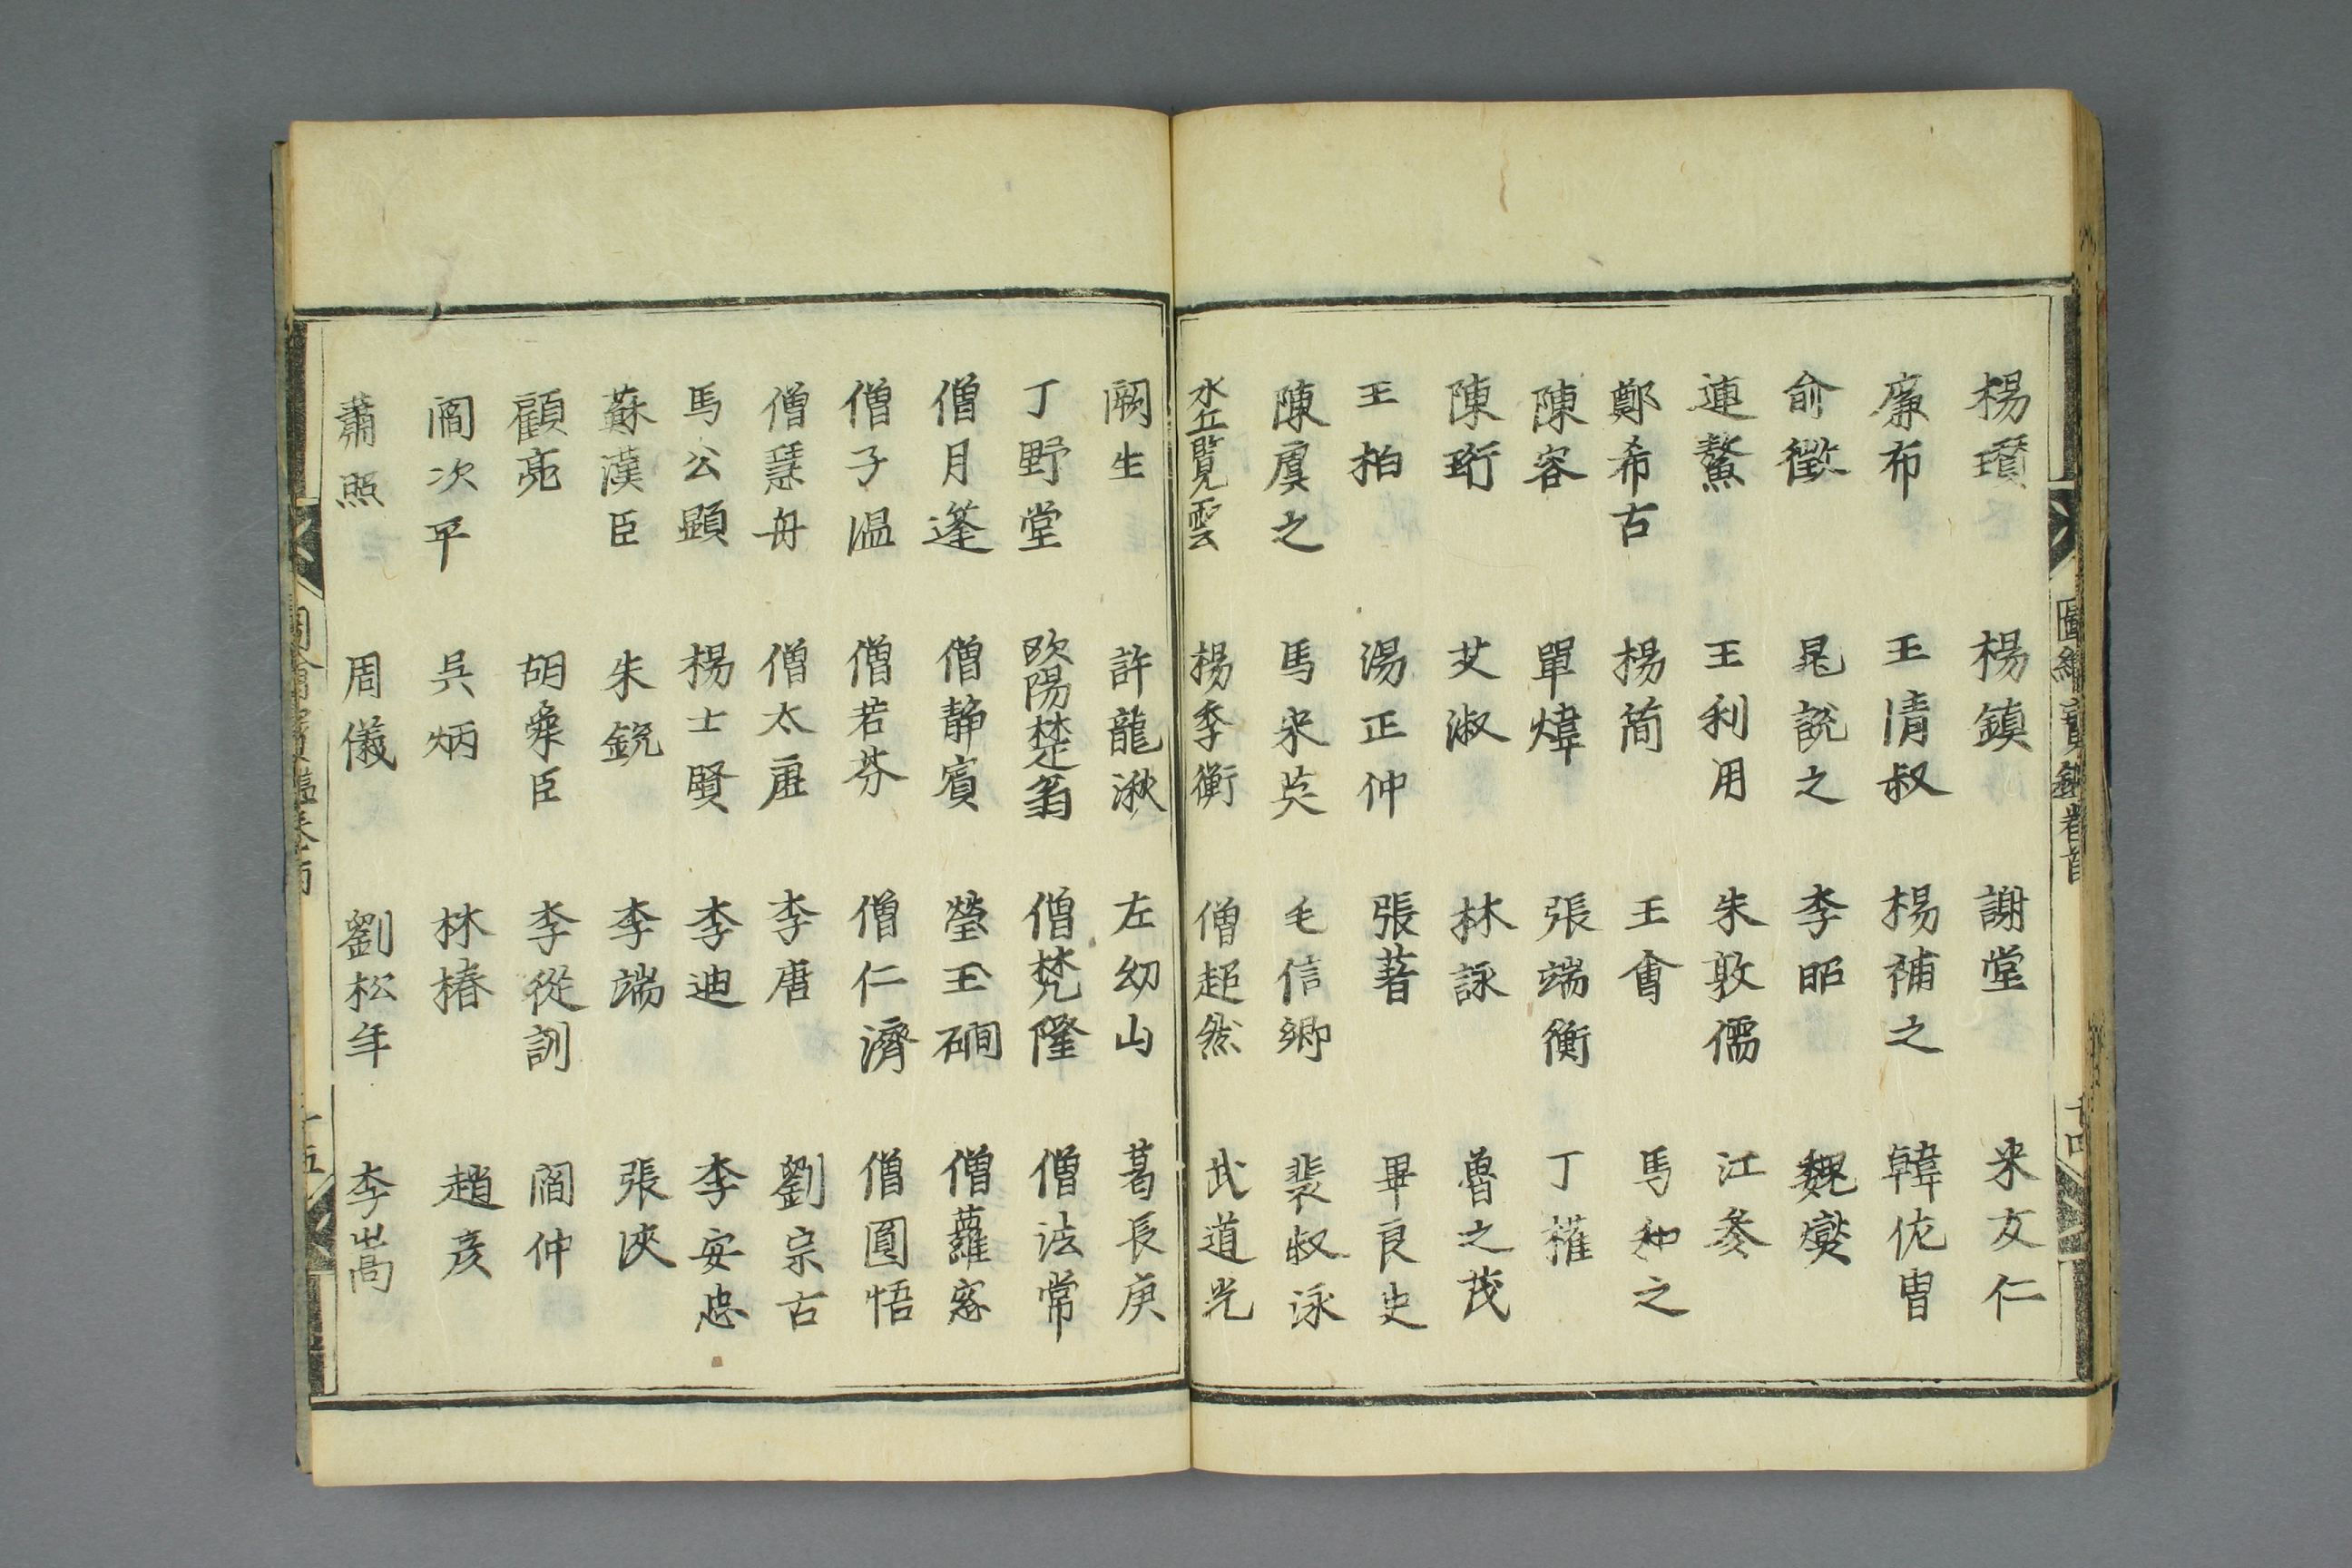 楊瓚 楊鎮 謝堂 米友仁
廉布 王清叔 楊補之 韓侂胄
俞徵 晁說之 李昭 魏燮
連鰲 王利用 朱敦儒 江參
鄭希古 楊簡 王會 馬和之
陳容 單煒 張端衡 丁權
陳珩 艾淑 林詠 魯之茂
王柏 湯正仲 張著 畢良史
陳虞之 馬宋英 毛信卿 裴叔泳
水丘覽雲 楊季衡 僧超然 武道光
圖繪寶鑑卷首
十四
闕生 許龍湫 左幼山 葛長庚
丁野堂 欧陽楚翁 僧梵隆 僧法常
僧月蓬 僧静賓 瑩玉磵 僧蘿窓
僧子温 僧若芬 僧仁濟 僧圓悟
僧慧舟 僧太虚 李唐 劉宗古
馬公顯 楊士賢 李迪 李安忠
蘇漢臣 朱銳 李端 張浹
顧亮 胡舜臣 李從訓 閻仲
閻次平 吳炳 林椿 趙彦
蕭照 周儀 劉松年 李嵩
圖繪寶鑑卷首
十五